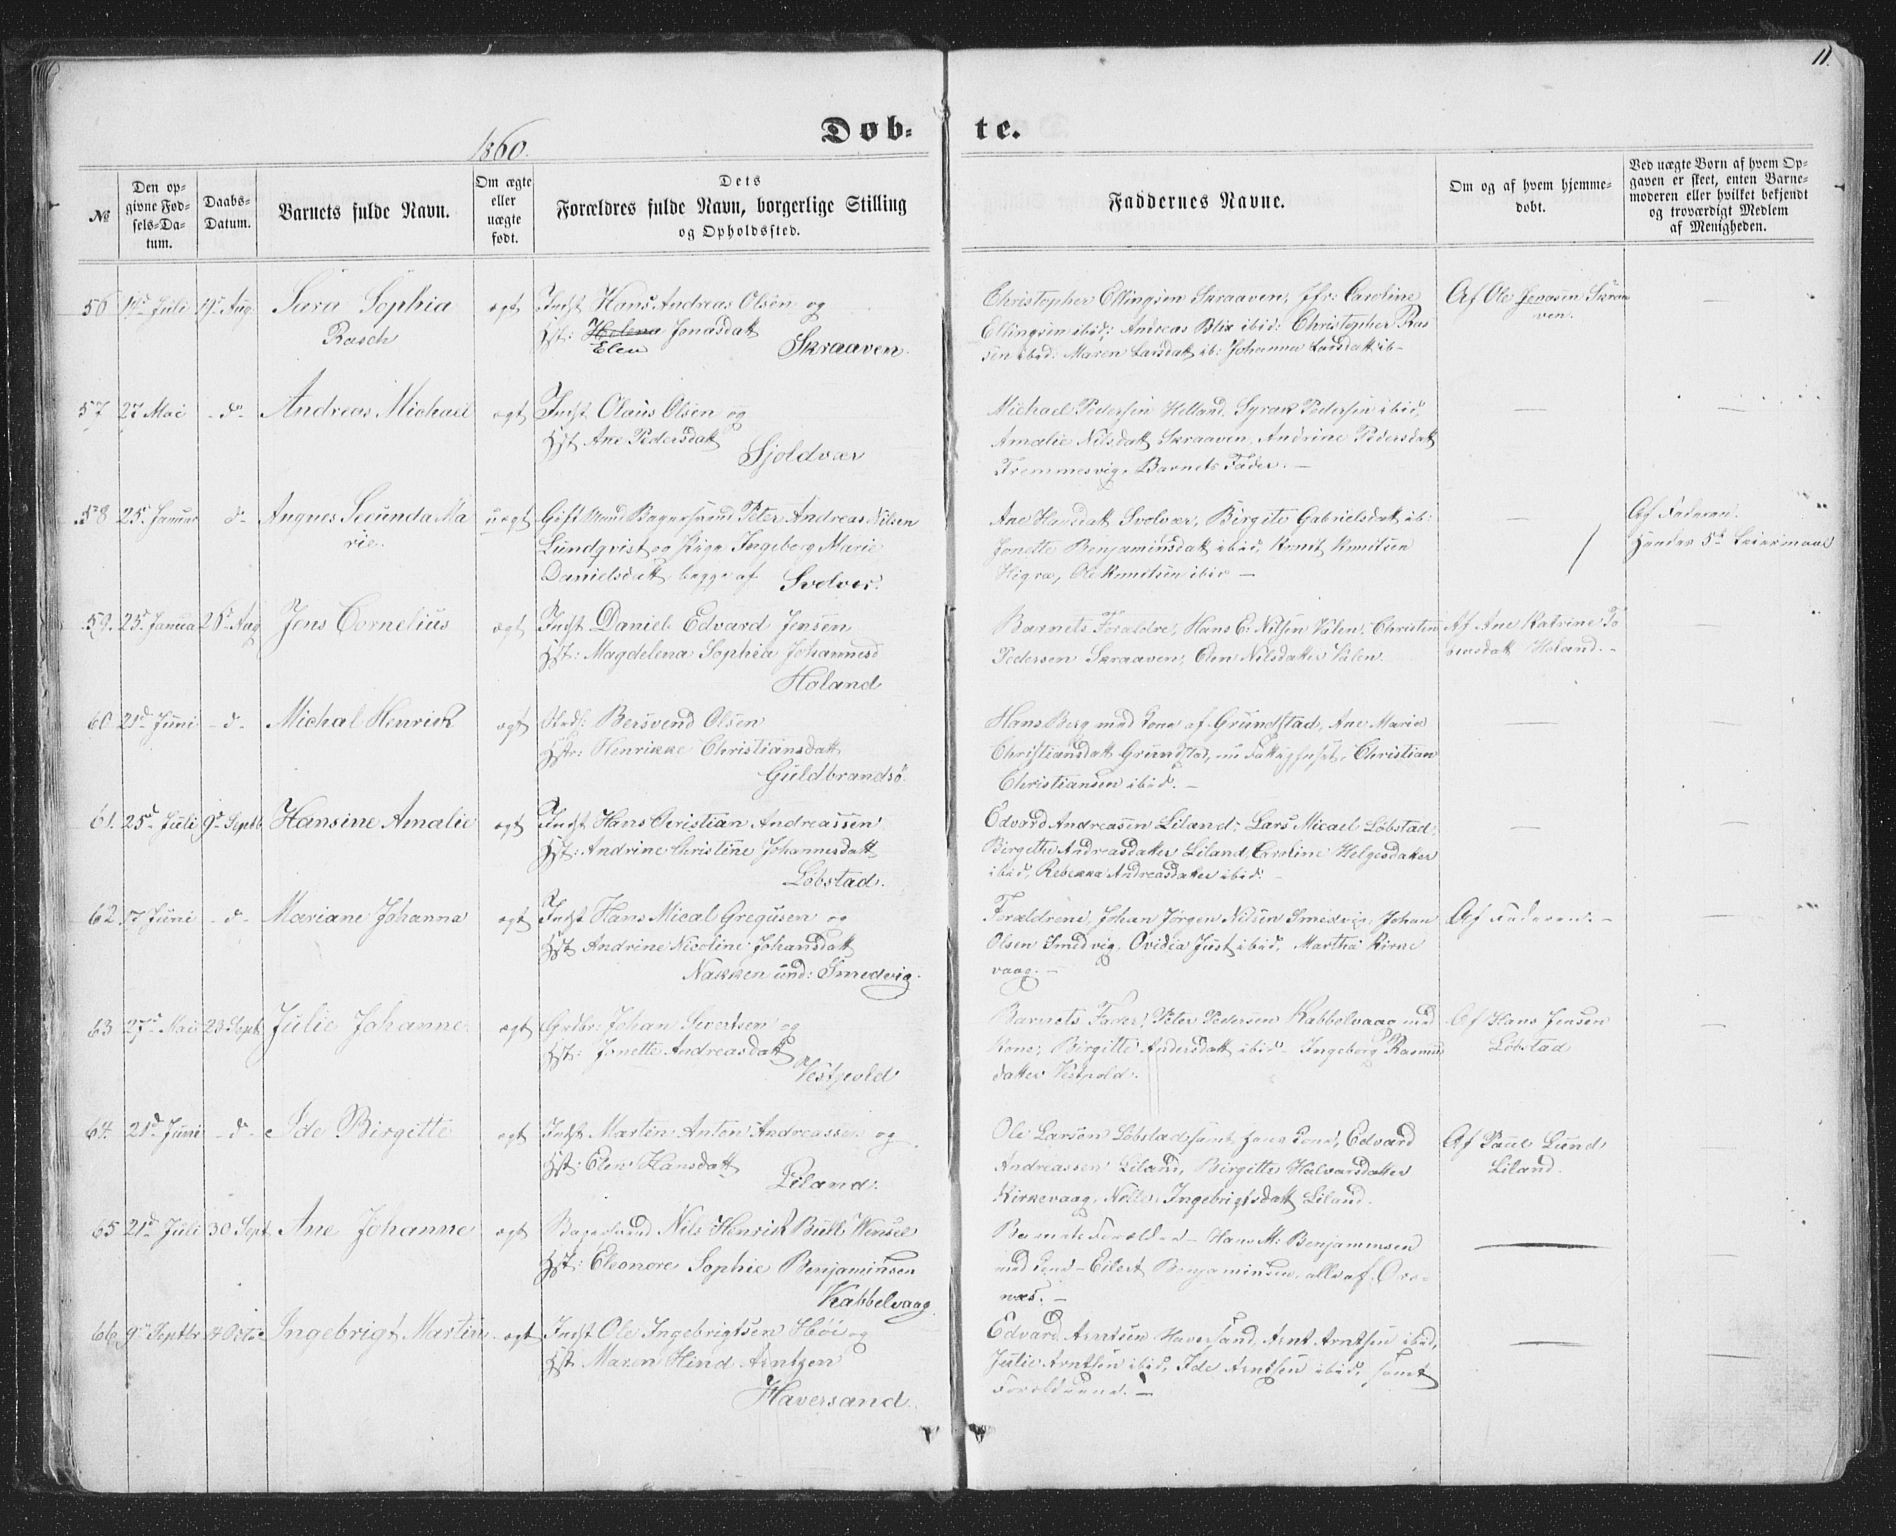 11.
Døb- te.
1860.
№
Den op-
givne Fød-
sels-Da-
tum.
Daabs-
Datum.
Barnets fulde Navn.
Om ægte
eller
uægte
født.
Dets
Forældres fulde Navn, borgerlige Stilling
og Opholdssted.
Faddernes Navne.
Om og af hvem hjemme-
døbt.
Ved uægte Børn af hvem Op-
gaven er skeet, enten Barne-
moderen eller hvilket bekjendt
og troværdigt Medlem
af Menigheden.
56 19d Juli 19d Aug Sara Sophia ægt Indst Hans Andreas Olsen og
Rasch
Hst: Helena Jonasdatt
Elen Skraaven.
Christopher Ellingsen Skraaven, Jfr: Caroline
Ellingsen ibid; Andreas Blix ibid: Christopher Ras
sen ibid: Maren Larsdatt ib: Johanna Larsdatt ib-
Af Ole Jonasen Skraa
ven.
57 27 Mai -d- Andreas Michael ægt Indst Olaus Olsen og
Hst Ane Pedersdatt
Sjoldvær
Michael Pedersen Helland, Syrak Pedersen ibid,
Amalie Nilsdatt Skraaven, Andrine Pedersdatt
Fremmesvig, Barnets Fader. -
58 25 Januar d- Angnes Secunda Ma uægt Gift Mand Bagersvend Peter Andreas Nilsen
rie.
Lundqvist og Pige Ingeborg Marie
Danielsdatt begge af Svolvær.
Ane Hansdatt Svolvær, Birgite Gabrielsdatt ib:
Jonette Benjaminsdatt ibid, Knut Knutsen
Higrav, Ole Knutsen ibid -
Af Faderen.
Hendes 5te Leiermaal
59. 25d Janua 26d Aug Jens Cornelius ægt Indst Daniel Edvard Jensen
Hst: Magdelena Sophia Johannesd
Holand
Barnets Forældre, Hans C: Nilsen Valen, Christen
Pedersen Skraaven, Elen Nilsdatter Valen.
Af Ane Katrine To
biasdatt Holand. -
60 21d Juni -d- Michal Henrik ægt Bersvend Olsen
Hstr: Henrikke Christiansdatt
Guldbrandsø.
Hans Berg med Kone af Grundstad, Ane Maria
Christiansdatt Grundstad, Christian
Christiansen ibid. -
61. 25d Juli 9d Septb Hansine Amalie ægt Indst Hans Christian Andreassen
Hst: Andrine Christine Johannesdatt
Løbstad.
Edvard Andreasen Liland, Lars Micael Løbstad,
Birgethe Andreasdatter Liland, Caroline Helgesdatter
ibid, Rebekka Andreasdatter ibid. -
62 17 Juni -d- Mariane Johanna ægt Indst Hans Mical Gregusen og
Hst Andrine Nicoline Johansdatt
Nakken und: Smedvig.
Forældrene, Johan Jørgen Nilsen Smedvig, Johan
Olsen Smedvig, Ovidia Just ibid, Martha Kirke
vaag. -
Af Faderen. -
63 27d Mai 23 Septb Julie Johanne ægt Grdbr: Johan Sivertsen og
Hst: Jonette Andreasdatt
Vestpold
Barnets Fader, Peter Pedersen Kabbelvaag med
Kone, Birgitte Andersdatt ibid - Ingeborg Rasmus
datter Vestpold.
Af Hans Jensen
Løbstad
64. 21d Juni -d- Ide Birgitte ægt Indst Martin Anton Andreassen og
Hst: Elen Hansdatt
Liland.
Ole Larsen Løbstad samt hans Kone, Edvard
Andreassen Liland, Birgitte Halvorsdatter
Kirkevaag, Ingebrigtsdatt Liland.
Af Paul Lund
Liland.
65 21d Juli 30 Sept Ane Johanne ægt Bagersvend Nils Henrik Butl Wensel
Hst: Eleonore Sophie Benjaminsen
Kabbelvaag.
Barnets Forældre - Hans M: Benjaminsen
med Kone - Eilert Benjaminsen, alle af Ørs-
næs. -
66 9d Septbr 4 Octo Ingebrigt Martin ægt Indst Ole Ingebrigtsen Høi og
Hst Maren Hind Arntzen
Haversand.
Edvard Arntsen Haversand, Arnt Arntsen ibid,
Julie Arntsen ibid, Ide Arntsen ibid, samt
Forældrene. -